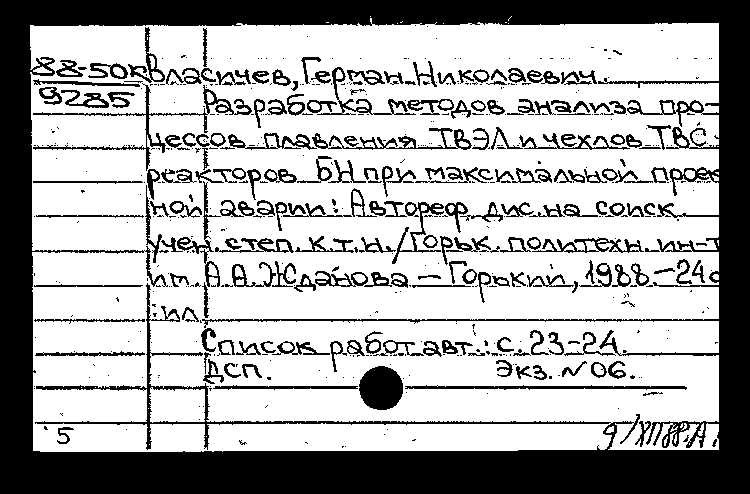 88-50к Власичев, Герман Николаевич.
9285 Разработка методов анализа про-
цессов плавления ТВЭЛ и чехлов ТВС
реакторов БН при максимальной проек
ной аварии: Автореф. дис. на соиск.
учен. степ. к.т.н. / Горьк. политехн. ин-т
им. А.А. Жданова – Горький, 1988. – 24 с
: ил.
Список работ авт.: с. 23-24.
ДСП. Экз. №06.
5 9/XII 88. А.